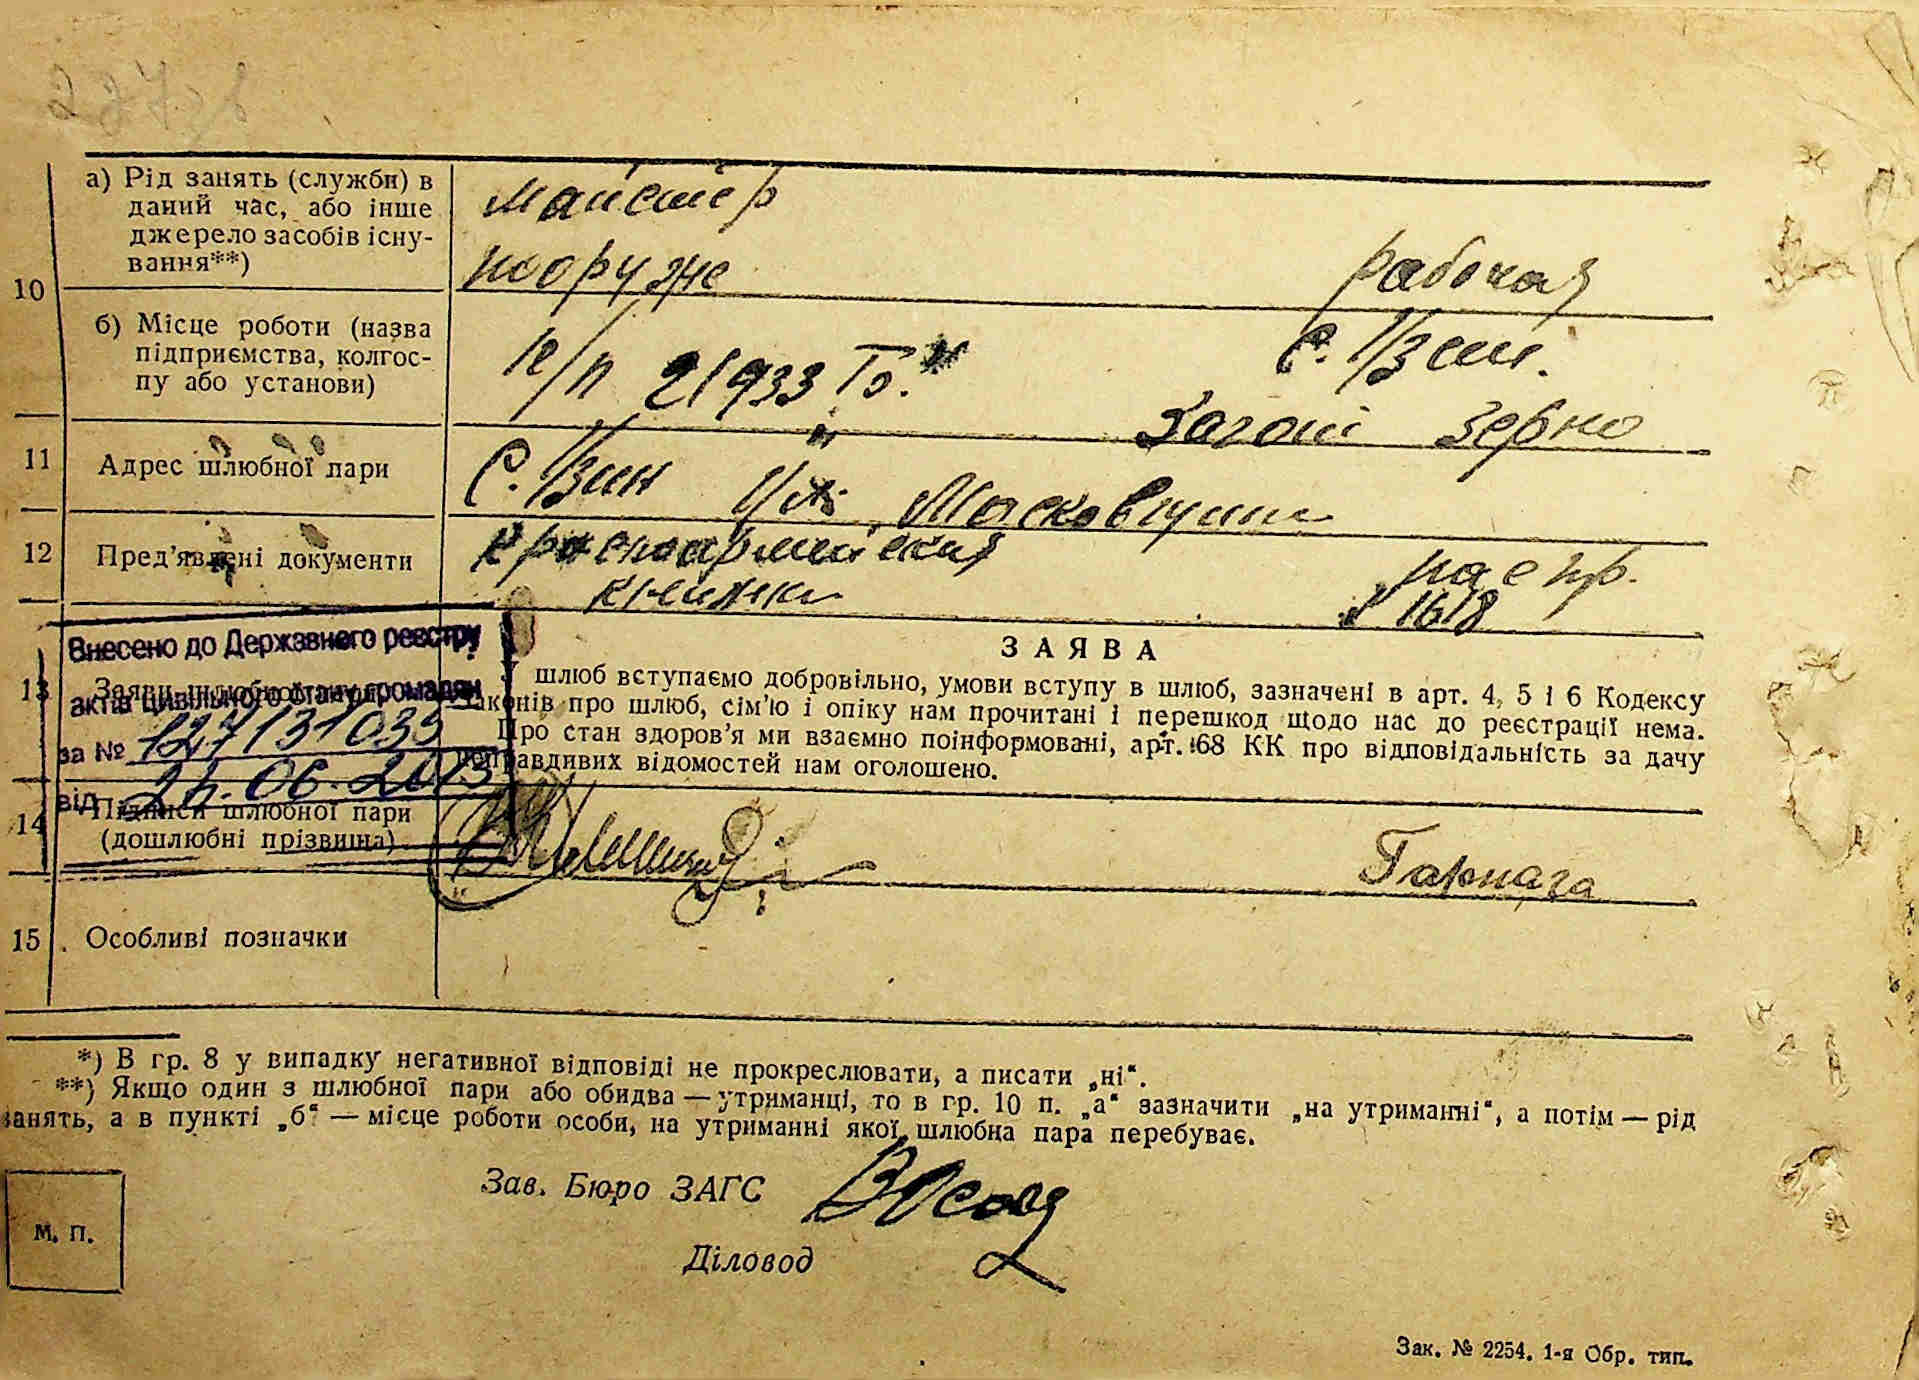 227зв
10
а) Рід занять (служби) в
даний час, або інше
джерело засобів існу-
вання**)
майстер
рабочая
б) Місце роботи (назва
підприємства, колгос-
пу або установи)
п/п 21933
Загот Зерно
11
Адрес шлюбної пари
12
Пред’явлені документи
Красноармейская
книжка
паспр.
1618
Внесено до Державного реєстру
актів цивільного стану громадян
за № 127/31035
від 06.2013
13
ЗАЯВА
У шлюб вступаємо добровільно, умови вступу в шлюб, зазначені в арт. 4, 5 і 6 Кодексу
законів про шлюб, сім’ю і опіку нам прочитані і перешкод щодо нас до реєстрації нема.
Про стан здоров’я ми взаємно поінформовані, арт. 168 КК про відповідальність за дачу
неправдивих відомостей нам оголошено.
14
Підписи шлюбної пари
(дошлюбні прізвища)
15
Особливі позначки
*) В гр. 8 у випадку негативної відповіді не прокреслювати, а писати „ні“.
**) Якщо один з шлюбної пари або обидва — утриманці, то в гр. 10 п. „а“ зазначити „на утриманні“, а потім — рід
занять, а в пункті „б“ — місце роботи особи, на утриманні якої шлюбна пара перебуває.
Зав. Бюро ЗАГС
М. П.
Діловод
Зак. № 2254. 1-я Обр. тип.